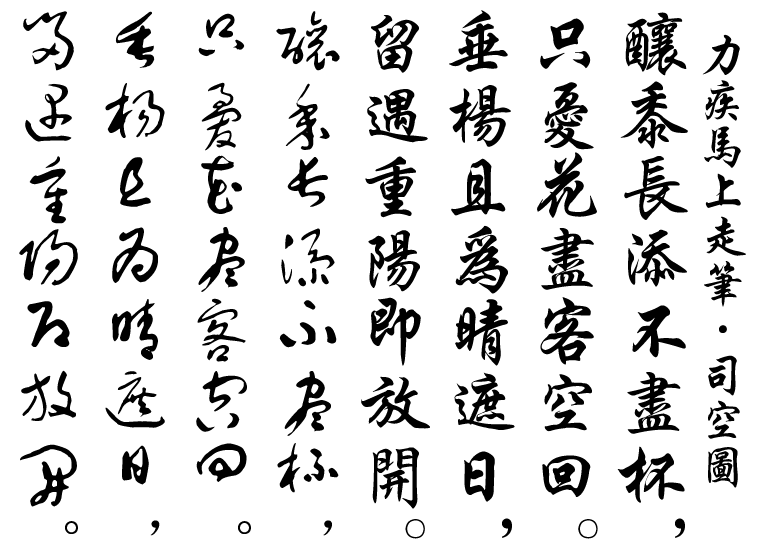 力疾馬上走筆·司空圖
釀黍長添不盡杯，
只憂花盡客空回。
垂楊且為晴遮日，
留遇重陽即放開。
釀黍長添不盡杯，
只憂花盡客空回。
垂楊且為晴遮日，
留遇重陽即放開。